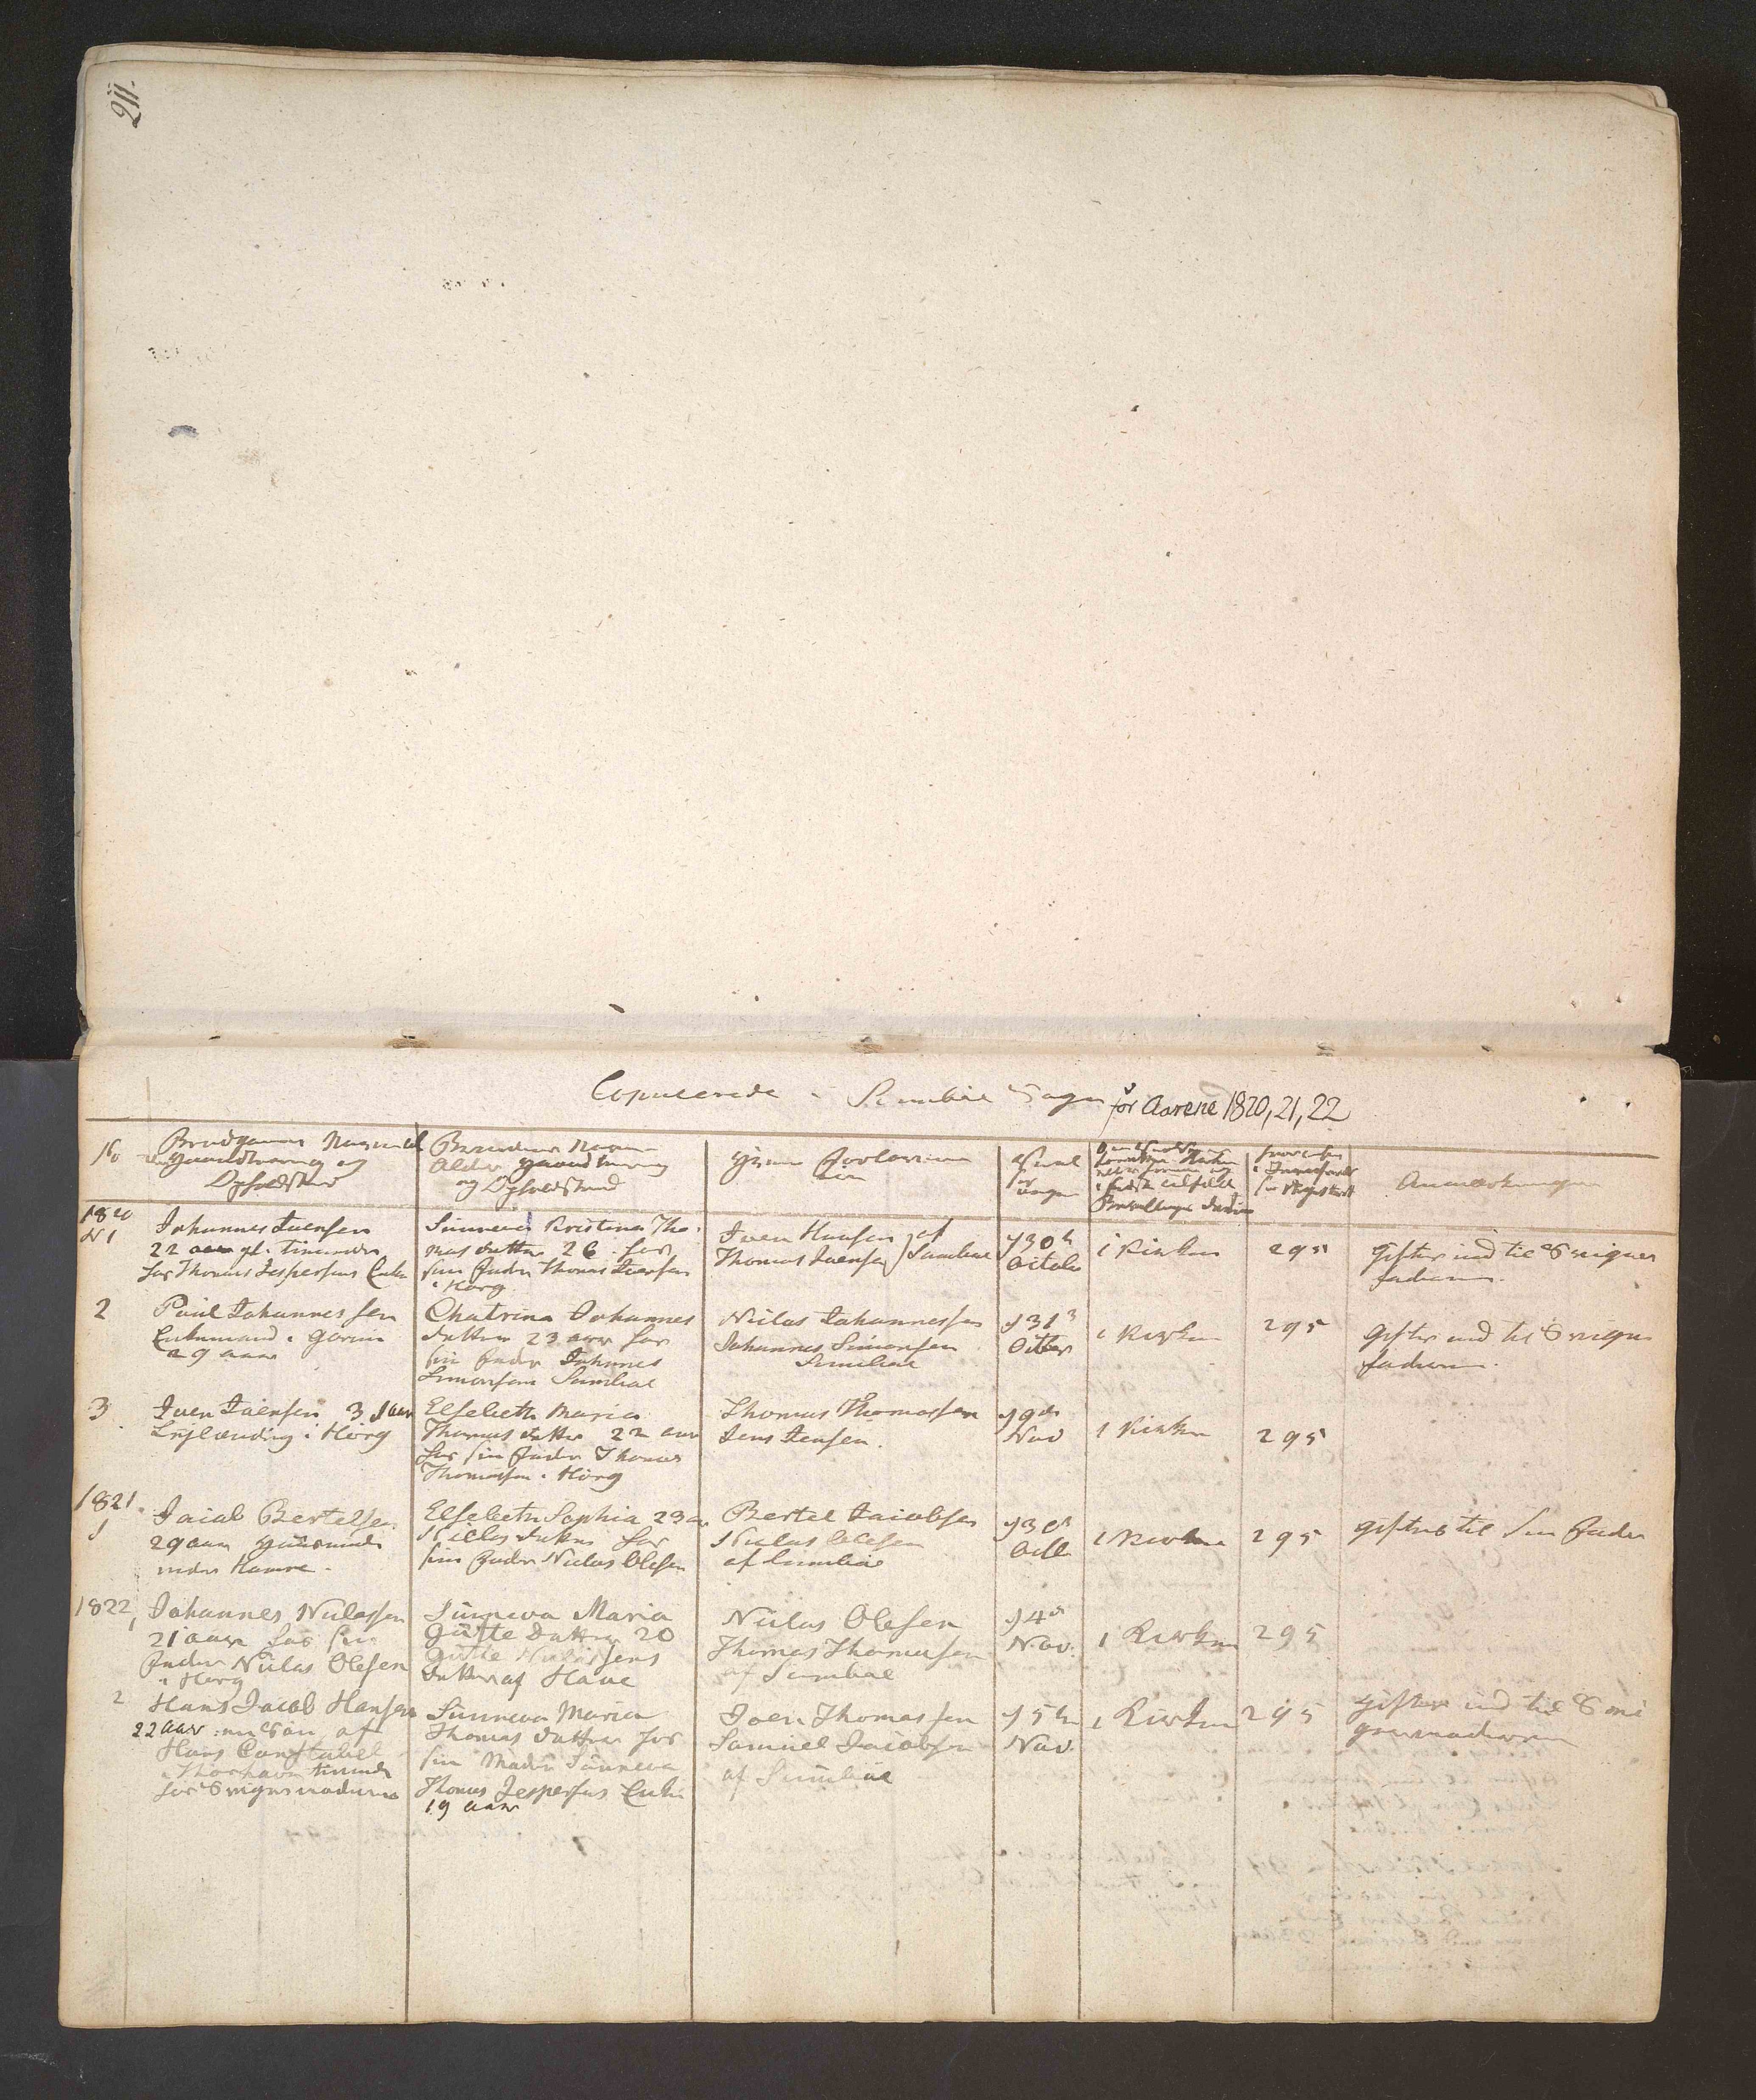 211.
Copulerede i Sumbøe Sogn for Aarene 1820, 21, 22
No
Brudgommens Navn Alder
Haandtering og
Opholdsted
Brudens Navn
Alder Haandtering
og Opholdsted
Hvem Forloverne
ere
Anmærkninger
1820
N 1
Johannes Joensen
22 aar gl. tienende
hos Thomas Jespersens Enke
Sunneva Kristina Tho-
mas datter 26 hos
sin Fader Thomas Joensen
i Horg
Joen Hansen af
Thomas Joensen Sumbøe
d 30te
Octob
i Kirken
295
Gifter ind til Sviger
faderen.
2
Poul Johannessen
Enkemand i
29 aar
Chatrina Johannes
datter 23 aar hos
sin Fader Johannes
Simonsen Sumbøe
Niclas Johannessen
Johannes Simonsen
Sumbøe
d 31
Octbr
i Kirken
295
Gifter ind til Sviger
faderen.
3
Joen Joensen
i Hörg
Elsebeth Maria
Thomas datter 22 aar
hos sin Fader Thomas
Thomassen i Hörg
Thomas Thomassen
Jens Jensen.
d 9de
Nov
i Kirken
295
1821
1
Jacob Bertelsen
29 aar
Elsebeth Sophia 23
Niclas datter hos
sin Fader Niclas Olesen
Bertel Jacobsen
Niclas Olesen
af Sumbøe
d 30
Octb
i Kirken
295
giftes til sin Fader
1822
1
Johannes Niclassen
21 aar hos sin
Fader Niclas Olesen
i Horg
Sunneva Maria
Gutte datter 20
Gutte Jens
datter af Hove
Niclas Olesen
Thomas Thomassen
af Sumbøe
d 4de
Nov.
i Kirken
295
2
Hans Jacob Hansen
22 aar en Søn af
Hans Constabel
i Thorshavn tienende
hos Svigermoderen
Sunneva Maria
Thomas datter hos
sin Moder Sunneva
Thomas Jespersens Enke
19 aar
Joen Thomassen
Samuel Jacobsen
af Sumbøe
d 5te
Nov.
i Kirken
295
Gifter ind til Svi
germoderen